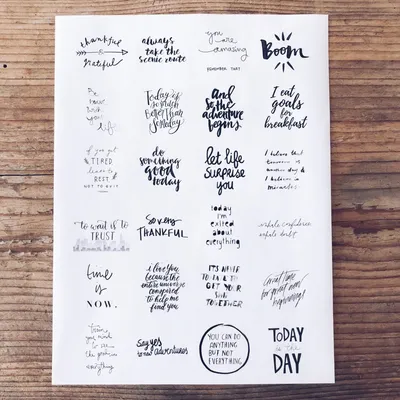 thankful
grateful
always
take the
scenic route
you
are
amazing
REMEMBER THAT
BOOM
Be
brave
with
your
life
Today is
so much
Better than
Someday
And
so the
adventure
begins
I eat
goals
for
breakfast
if you get
TIRED
learn to
REST
NOT TO QUIT
do
something
good
today
let life
SURPRISE
you
I believe that
tomorrow is
another day &
I believe in
miracles
to wait is to
TRUST
So very
THANKFUL
today
i'm
excited
about
everything
inhale confidence
exhale doubt
time
is
NOW.
i love you because
the
entire universe
conspired
to help me
find you
IT'S NEVER
TO LATE TO
GET YOUR
TOGETHER
Great time
for great new
beginnings!
your mind
to see
the good in
everything
Say yes
to new adventures
YOU CAN DO
ANYTHING
BUT NOT
EVERYTHING.
TODAY
is the
DAY